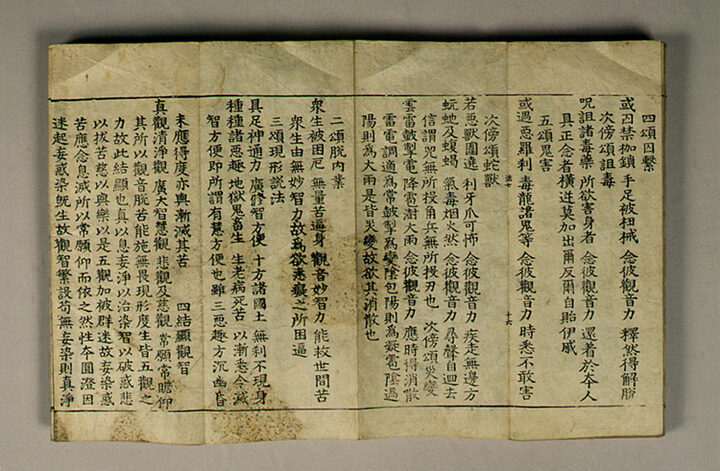 四頌囚繫
或囚禁枷鎖 手足被杻械 念彼觀音力 釋然得解脫
次傍頌詛毒
呪詛諸毒藥 所欲害身者 念彼觀音力 還着於本人
具正念者橫逆莫加出爾反爾自胎伊慼
五頌鬼害
或遇惡羅刹 毒龍諸鬼等 念彼觀音力 時悉不敢害
法七 十六
次傍頌蛇獸
若惡獸圍遶 利牙爪可怖 念彼觀音力 疾走無邊方
蚖虵及蝮蝎 氣毒烟火然 念彼觀音力 尋聲自迴去
信謂兕無所投角兵無所投刃也 次傍頌災變
雲雷皷掣電 降雹澍大雨 念彼觀音力 應時得消散
雷電調適爲常皷掣爲變陰包陽則爲凝雹陰過
陽則爲大雨是皆災變故欲其消散也
二頌脫內業
衆生被困厄 無量苦逼身 觀音妙智力 能救世間苦
衆生由無妙智力故爲欲恚癡之所困逼
三頌現形說法
具足神通力 廣修智方便 十方諸國土 無刹不現身
種種諸惡趣 地獄鬼畜生 生老病死苦 以漸悉令滅
智方便即所謂有慧方便也雖三惡趣方沉幽昏
未應得度亦與漸滅其苦 四結顯觀智
真觀清淨觀 廣大智慧觀 悲觀及慈觀 常願常瞻仰
其所以觀音脫苦能施無畏現形度生皆五觀之
力故此結顯也真以息妄淨以治染智以破惑悲
以拔苦慈以與樂以是五觀加被群迷故妄染惑
苦應念息滅所以常願仰而依之然性本圓澄因
迷起妄惑染旣生故觀智繁設苟無妄染則真淨